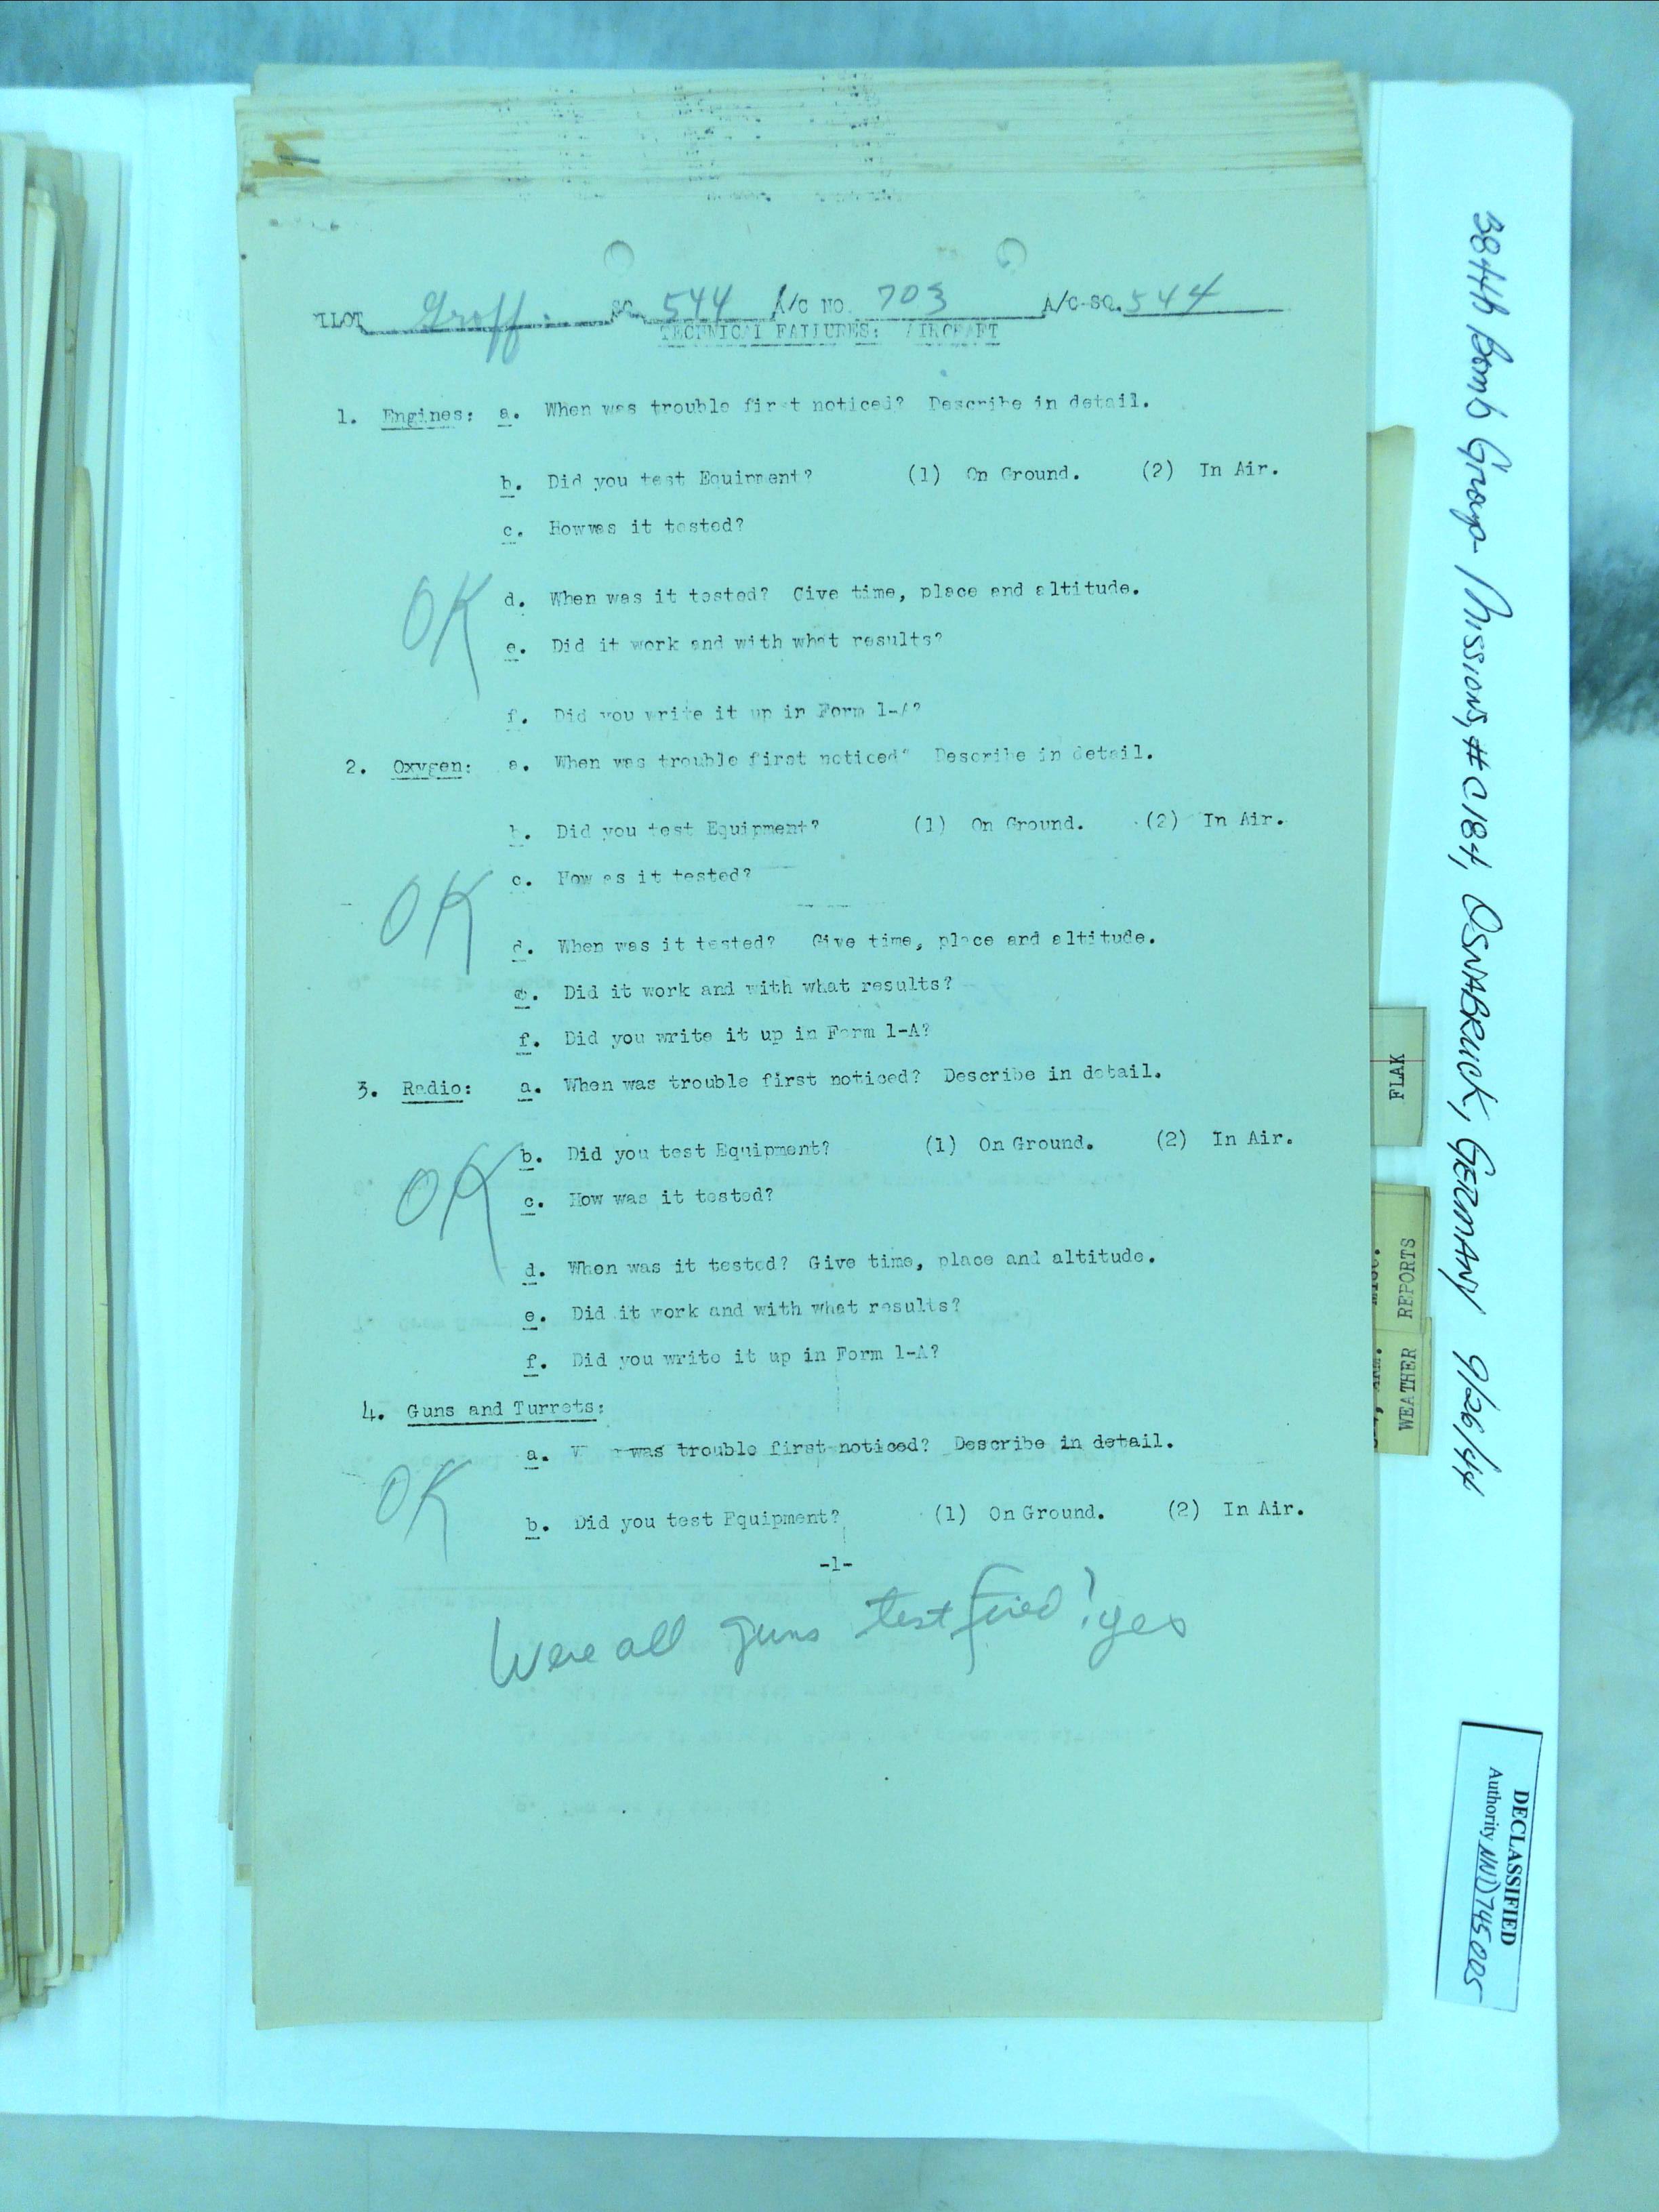 PILOT Groff. SQ. 544 A/C NO. 703 A/C-SQ. 544
TECHNICAL FAILURES: AIRCRAFT
1. Engines: a. When was trouble first noticed? Describe in detail.
b. Did you test Equipment? (1) On Ground. (2) In Air.
c. How was it tested?
d. When was it tested? Give time, place and altitude.
OK
e. Did it work and with what results?
f. Did you write it up in Form 1-A?
2. Oxygen: a. When was trouble first noticed? Describe in detail.
b. Did you test Equipment? (1) On Ground. (2) In Air.
c. How was it tested?
OK
d. When was it tested? Give time, place and altitude.
e. Did it work and with what results?
f. Did you write it up in Form 1-A?
3. Radio: a. When was trouble first noticed? Describe in detail.
b. Did you test Equipment? (1) On Ground. (2) In Air.
OK
c. How was it tested?
d. When was it tested? Give time, place and altitude.
e. Did it work and with what results?
f. Did you write it up in Form 1-A?
4. Guns and Turrets:
a. was trouble first noticed? Describe in detail.
OK
b. Did you test Equipment? (1) On Ground. (2) In Air.
-1-
Were all guns test fired? yes
384th Bomb Group- Missions, #C184, OSNABRUCK, GERMANY 9/26/44
FLAK
WEATHER REPORTS
DECLASSIFIED
Authority NND745005